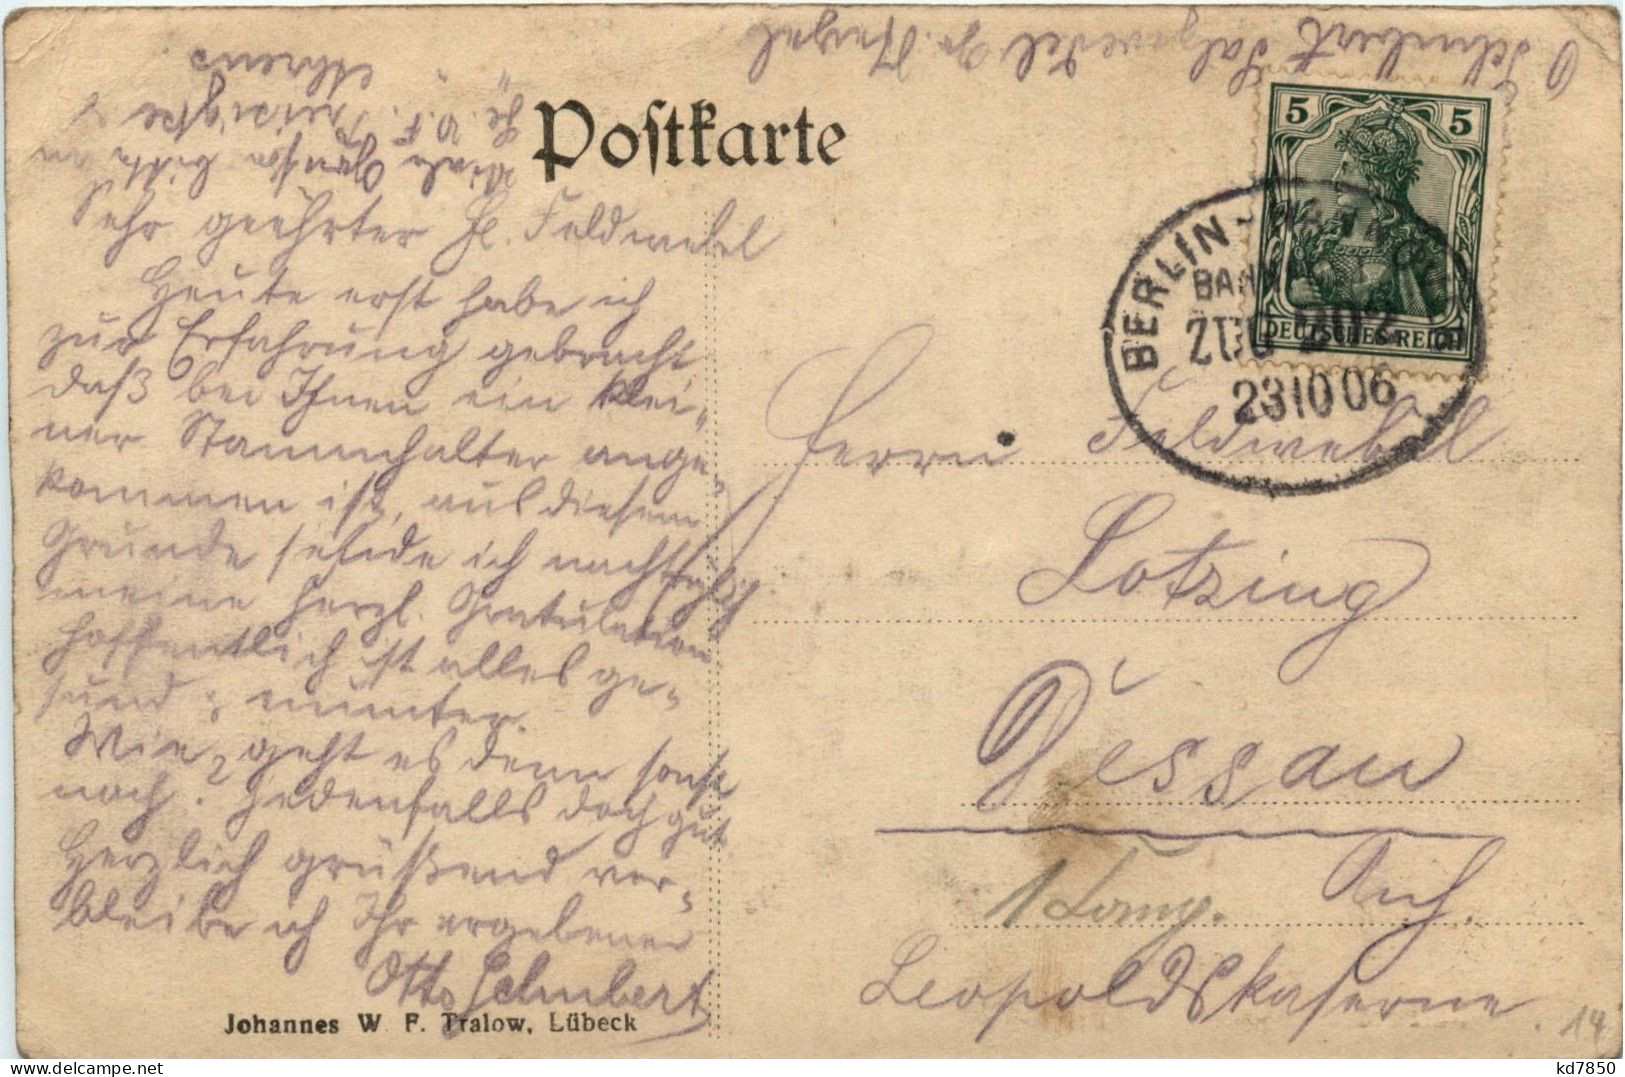 Postkarte
Sehr geehrter H. Feldwebel
Heute erst habe ich
zur Erfahrung gebracht
daß bei Ihnen ein klei-
ner Stammhalter ange-
kommen ist, aus diesem
Grunde sende ich nachträglich
meine herzl. Gratulation
hoffentlich ist alles ge-
sund & munter.
Wie geht es denn sonst
noch? Jedenfalls doch gut
Herzlich grüßend ver-
bleibe ich Ihr ergebener
Otto Schubert
Johannes W. F. Tralow, Lübeck
O Schubert Salzwedel
Viele Grüße bitte an
5 5
DEUTSCHES REICH
BERLIN
BAHN
ZUG 202
23 10 06
Herrn Feldwebel
Lotzing
Dessau
1 Comp.
Leopoldskaserne.
14
kd7850